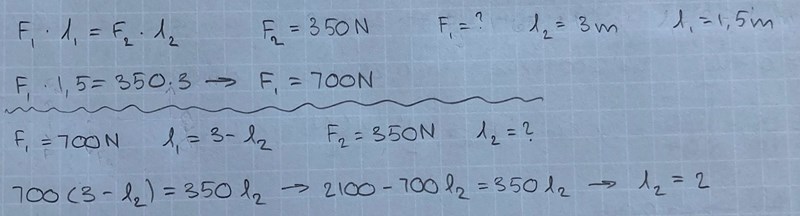 F₁ · l₁ = F₂ · l₂ F₂ = 350N F₁ = ? l₂ = 3m l₁ = 1,5m
F₁ · 1,5 = 350 · 3 → F₁ = 700N
F₁ = 700N l₁ = 3 - l₂ F₂ = 350N l₂ = ?
700 (3 - l₂) = 350 l₂ → 2100 - 700 l₂ = 350 l₂ → l₂ = 2